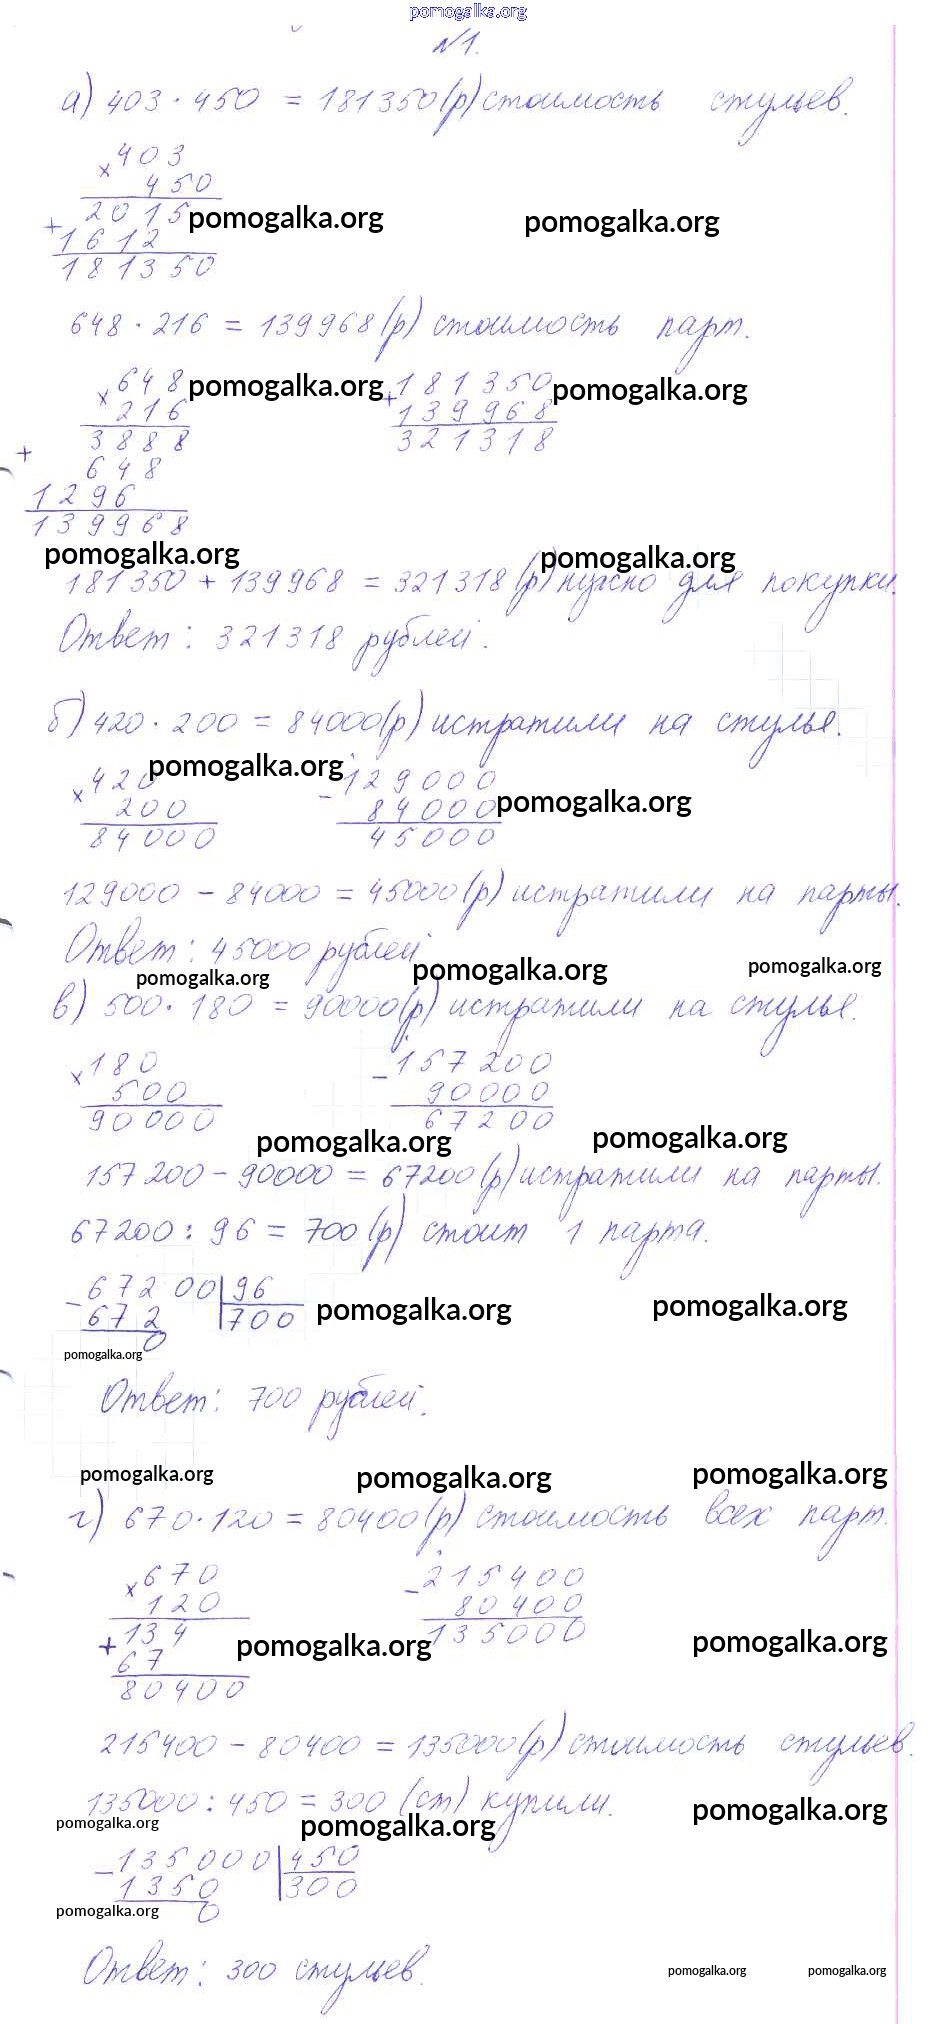 pomogalka.org
№1.
а) 403 · 450 = 181350 (р) стоимость стульев.
× 403
450
2015 pomogalka.org pomogalka.org
+ 1612
181350
648 · 216 = 139968 (р) стоимость парт.
× 648 pomogalka.org + 181350 pomogalka.org
216 139968
3888 321318
+ 648
1296
139968
pomogalka.org pomogalka.org
181350 + 139968 = 321318 (р) нужно для покупки.
Ответ: 321318 рублей.
б) 420 · 200 = 84000 (р) истратили на стулья.
× 420 pomogalka.org − 129000
200 84000 pomogalka.org
84000 45000
129000 − 84000 = 45000 (р) истратили на парты.
Ответ: 45000 рублей
pomogalka.org pomogalka.org pomogalka.org
в) 500 · 180 = 90000 (р) истратили на стулья.
× 180 − 157200
500 90000
90000 67200
pomogalka.org pomogalka.org
157200 − 90000 = 67200 (р) истратили на парты.
67200 : 96 = 700 (р) стоит 1 парта.
− 67200 96
672 700 pomogalka.org pomogalka.org
0
pomogalka.org
Ответ: 700 рублей.
pomogalka.org pomogalka.org pomogalka.org
г) 670 · 120 = 80400 (р) стоимость всех парт.
× 670 − 215400
120 80400
+ 134 pomogalka.org 135000 pomogalka.org
67
80400
215400 − 80400 = 135000 (р) стоимость стульев.
135000 : 450 = 300 (ст) купили.
pomogalka.org pomogalka.org pomogalka.org
− 135000 450
1350 300
pomogalka.org 0
Ответ: 300 стульев.
pomogalka.org pomogalka.org